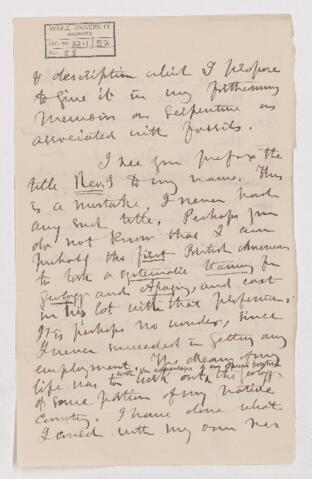 McGILL UNIVERSITY
ARCHIVES
ACC. NO. 2211/52
REF. 58
& description which I propose
to give it in my forthcoming
Memoir on Serpentine as
associated with fossils.
I see you prefix the
title Rev.d to my name. This
is a mistake. I never had
any such title. Perhaps you
do not know that I am
perhaps the first British American
to take a systematic training for
Geology and and cast
in his lot with that profession.
It is perhaps no wonder, since
I never succeeded in getting any
employment. The dream of my
life was to work out the geology
of some portion of my native
Country. I have done what
I could with my own